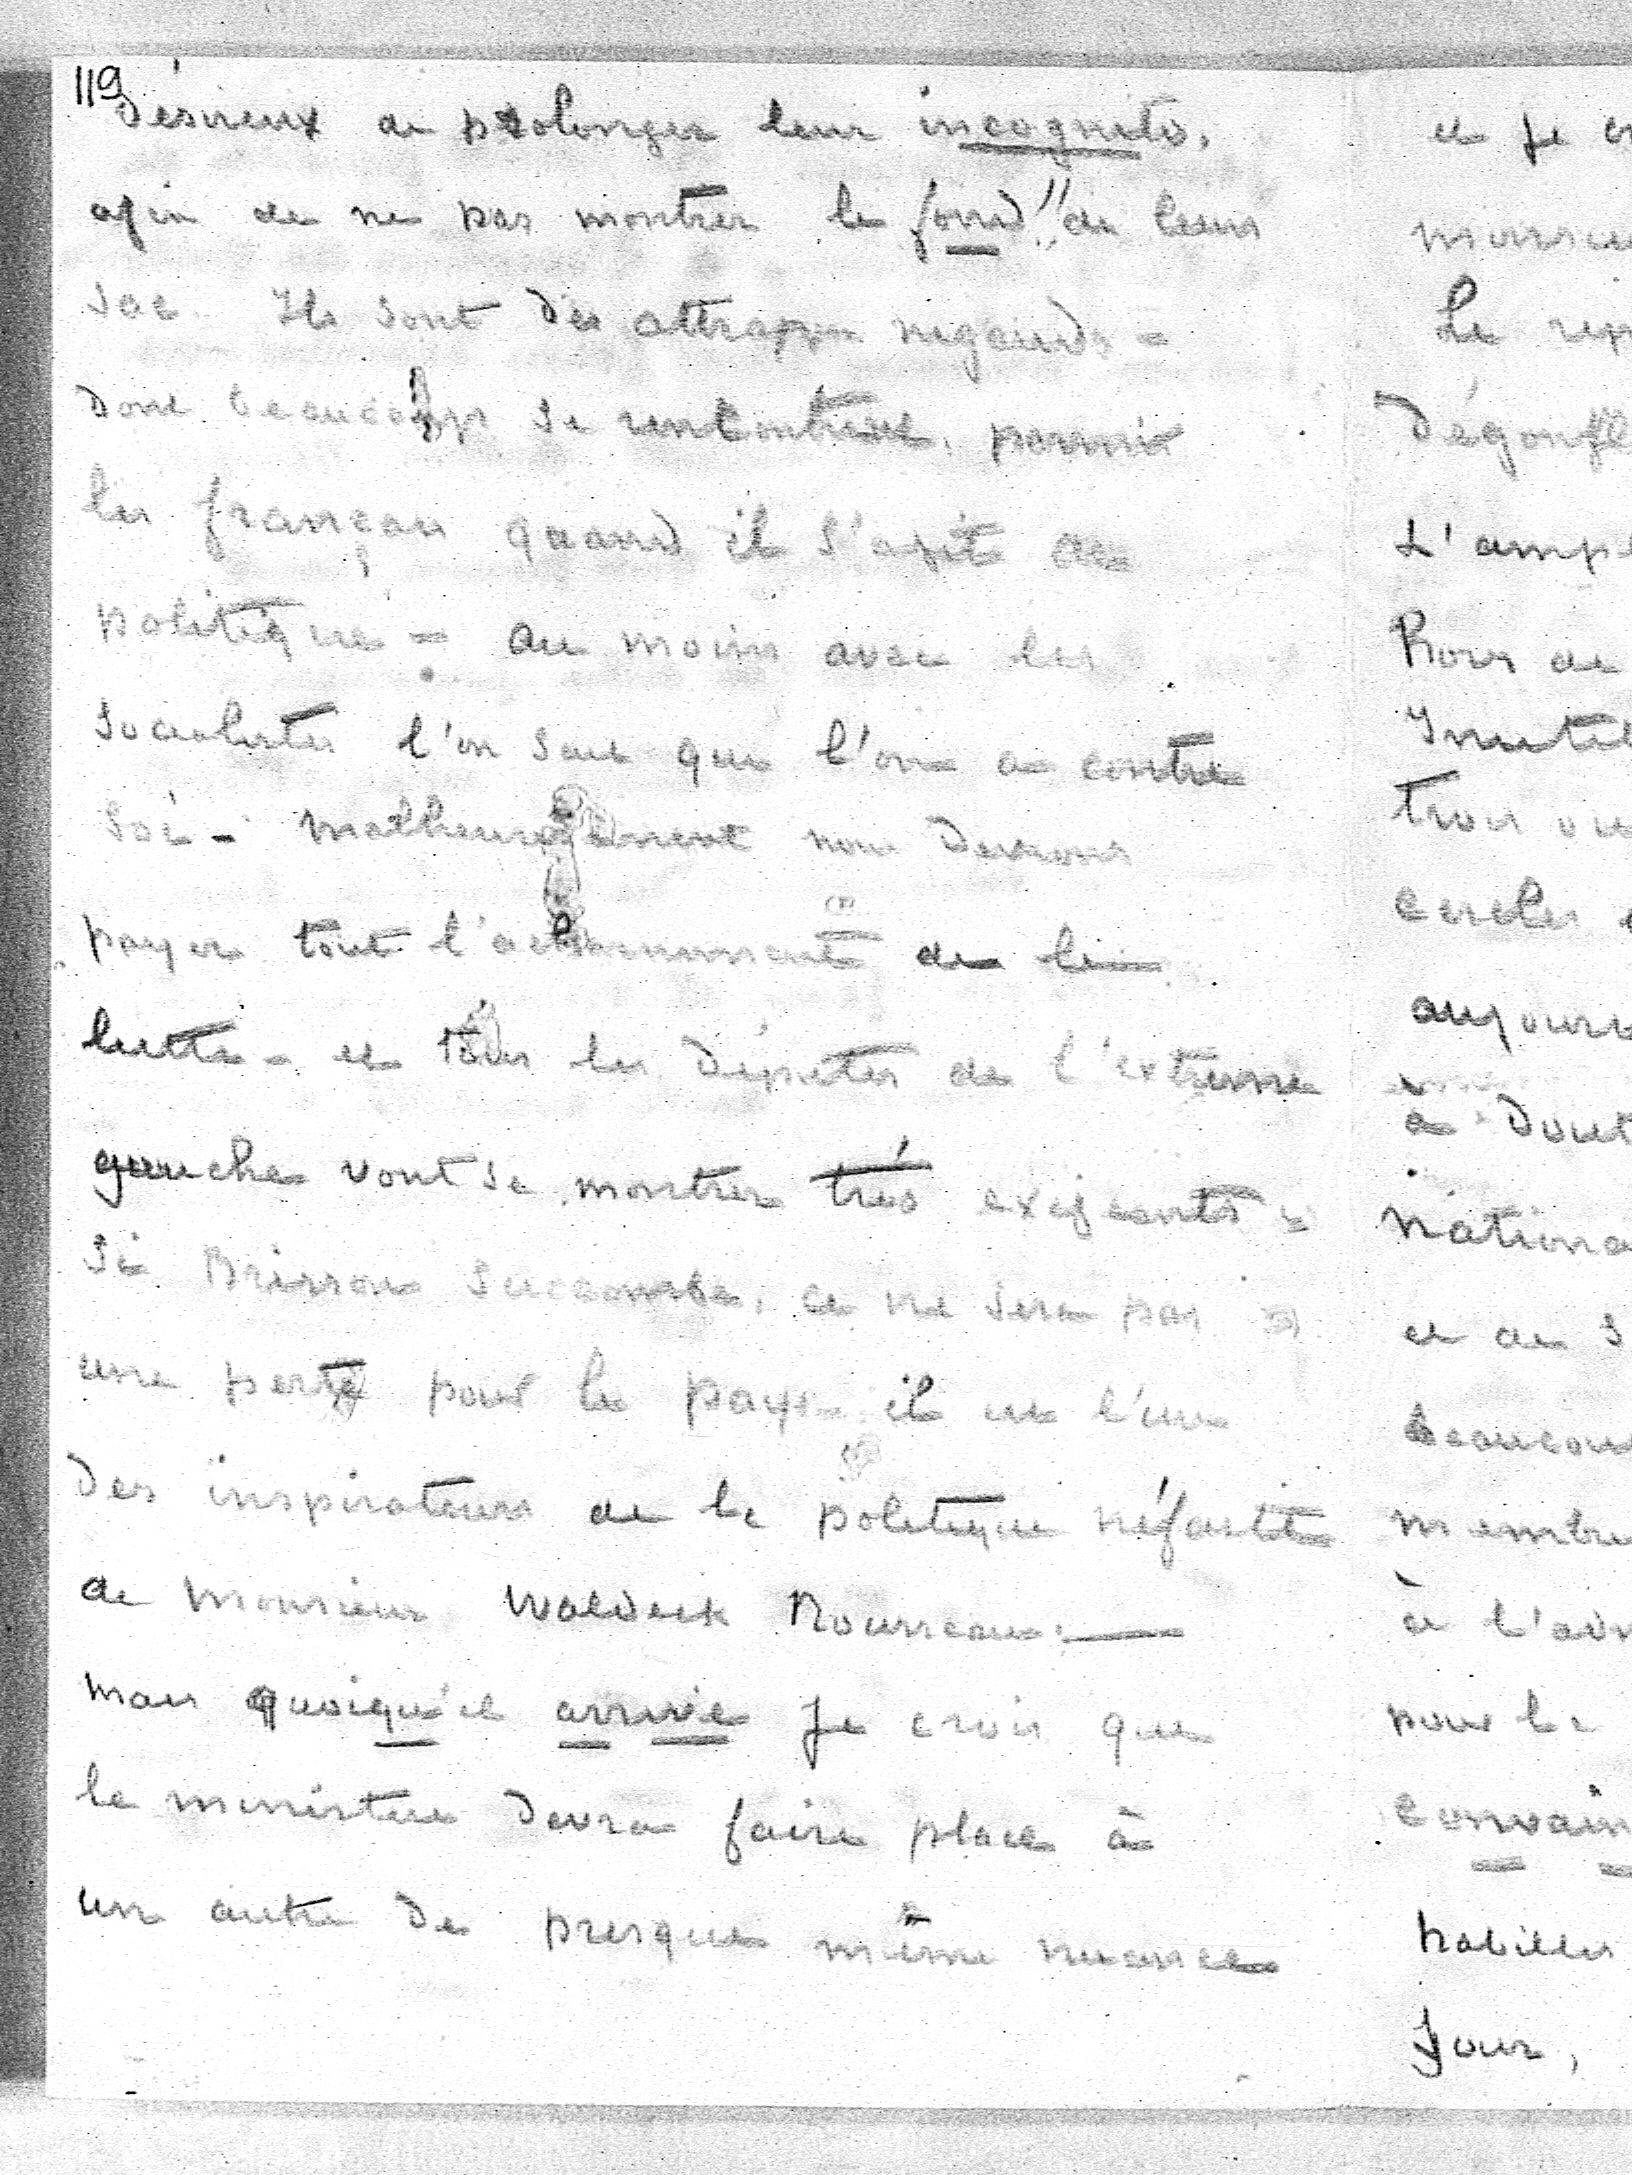 119
Désireux de prolonger leur incognito,
afin de ne pas montrer le fond" de leur
sac. Ils sont des attrapes nigauds =
dont beaucoup se rencontrent, parmi
les français quand il s'agit de
politique = au moins avec les
socialistes l'on sait que l'on a contre
soi - malheureusement nous devrons
payer tout l'acharnement de la
lutte - et tous les députés de l'extrême
gauche vont se montrer très exigeants =
si Brisson succombe, ce ne sera pas
une perte pour le pays il est l'un
des inspirateurs de la politique néfaste
de monsieur Waldeck Rousseau. —
mais quoiqu'il arrive je crois que
le ministère devra faire place à
un autre de presque même nuance
et je
monsieu
Le rep
Dégonfle
L'ampl
hors de
Inutile
trois ou
cercles
aujourd
à dout
nationa
et de s
beaucou
membre
à l'adv
pour la
convain
habiller
jour,